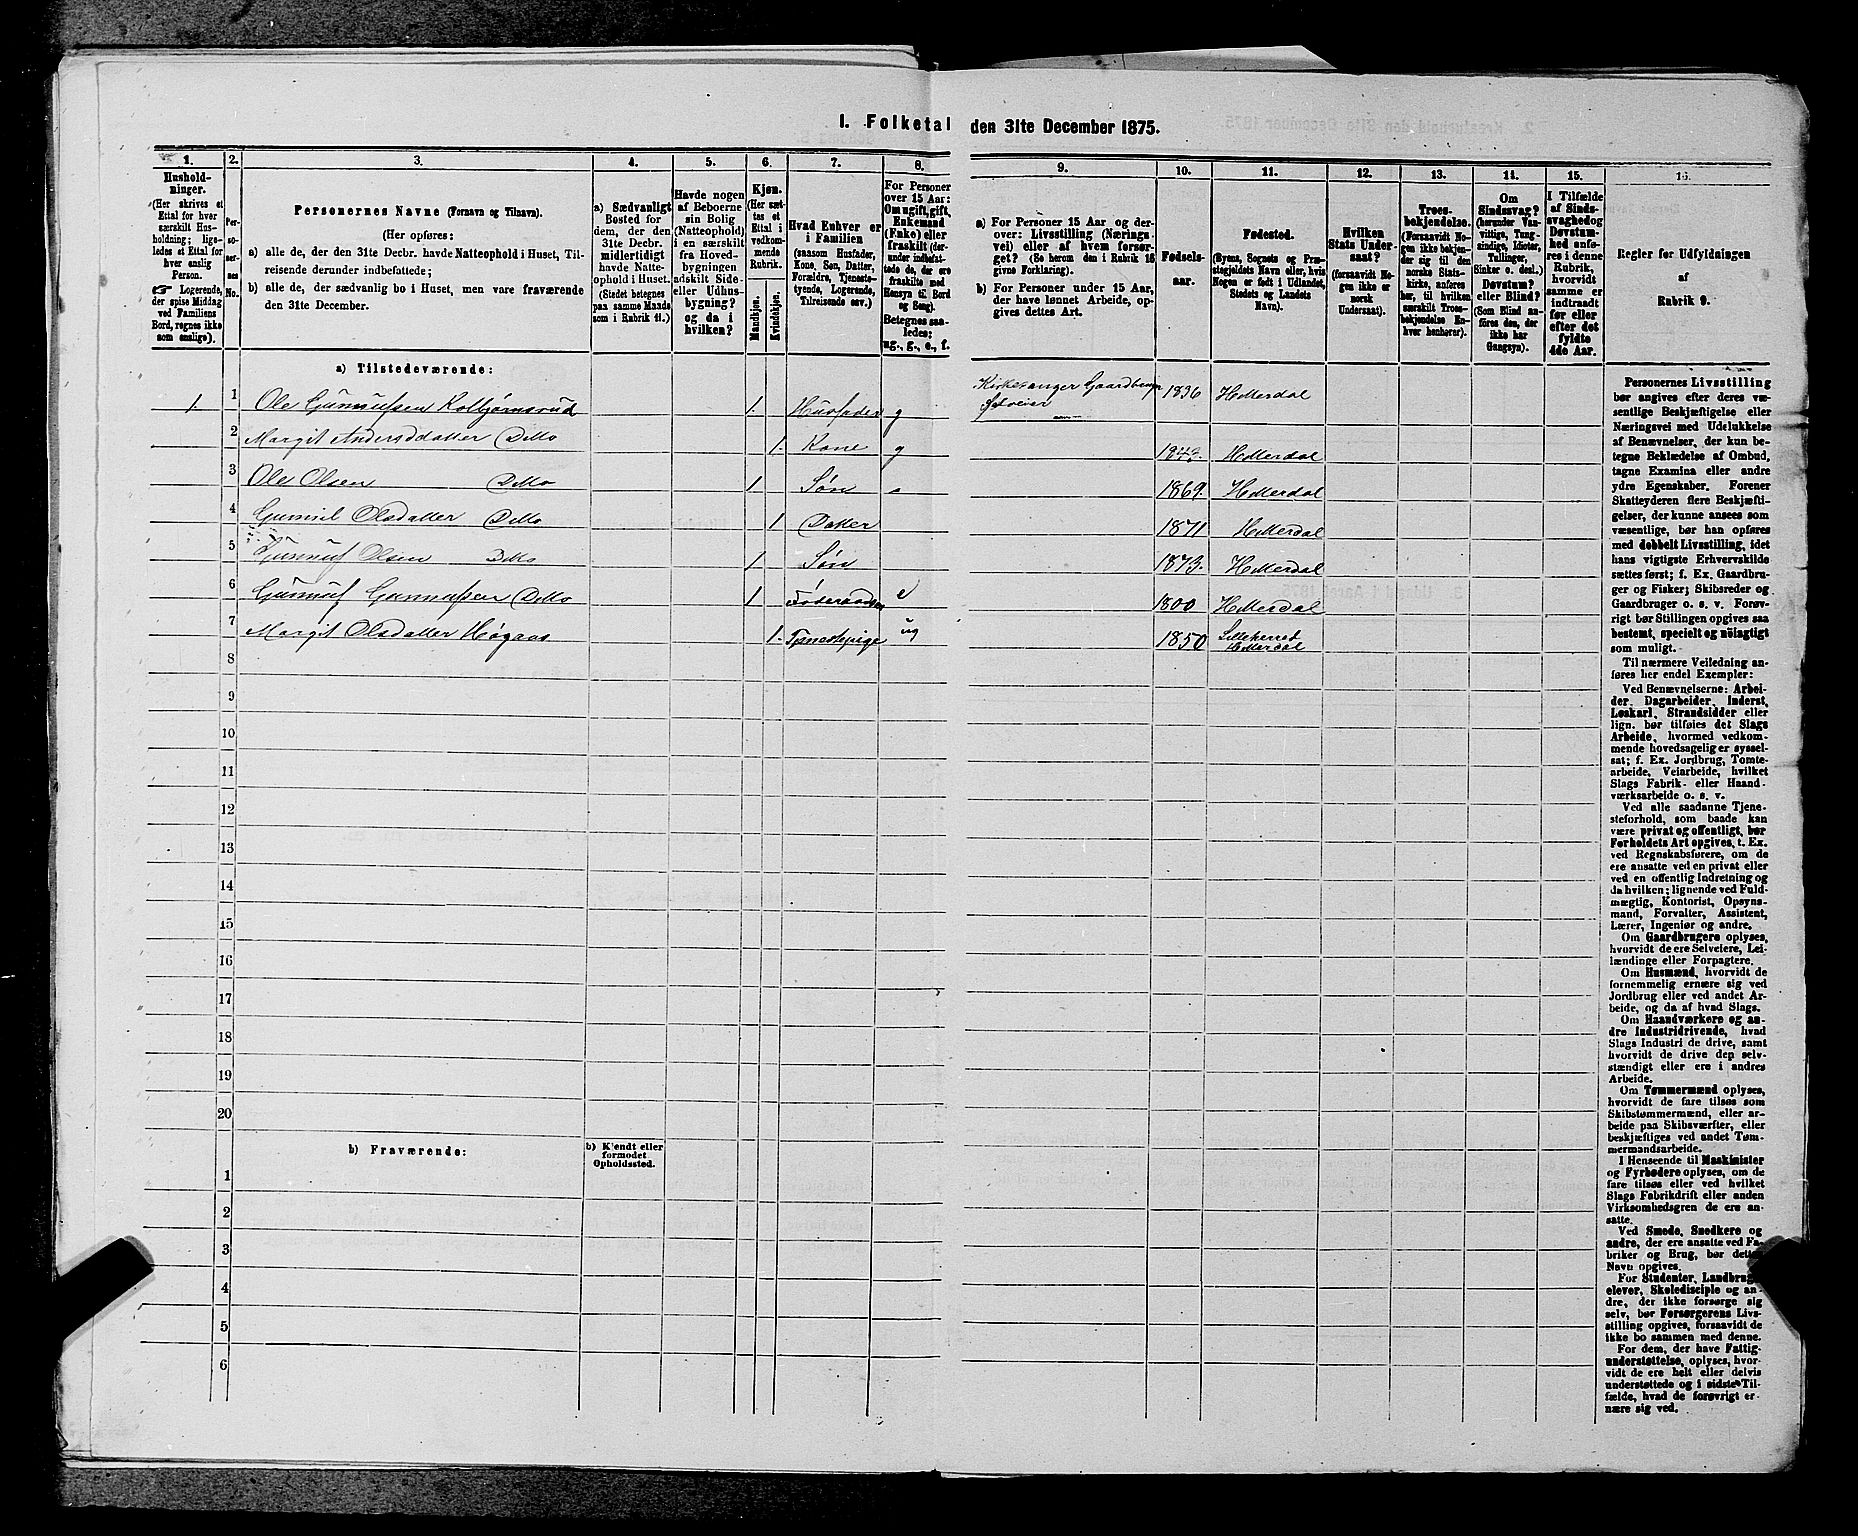 I. Folketal den 31te December 1875.
1. 2. 3. 4. 5. 6. 7. 8. 9. 10. 11. 12. 13. 14. 15. 16.
Hushold-
ninger.
(Her skrives et
Ettal for hver
særskilt Hus-
holdning; lige-
ledes et Ettal for
hver enlig
Person.
☞ Logerende,
der spise Middag
ved Familiens
Bord, regnes ikke
som enslige).
Per-
so-
ner-
nes
No.
Personernes Navne (Fornavn og Tilnavn).
(Her opføres:
a) alle de, der den 31te Decbr. havde Natteophold i Huset, Til-
reisende derunder indbefattede;
b) alle de, der sædvanlig bo i Huset, men vare fraværende
den 31te December.
a) Sædvanligt
Bosted for
dem, der den
31te Decbr.
midlertidigt
havde Natte-
ophold i Huset.
(Stedet betegnes
paa samme Maade
som i Rubrik 11.)
Havde nogen
af Beboerne
sin Bolig
(Natteophold)
i en særskilt
fra Hoved-
bygningen
adskilt Side-
eller Udhus-
bygning?
og da i
hvilken?
Kjøn.
(Her sæt-
tes et
Ettal i
vedkom-
mende
Rubrik.
Mandkjøn.
Kvindekjøn.
Hvad Enhver er
i Familien
(saasom Husfader,
Kone, Søn, Datter,
Forældre, Tjeneste-
tyende, Logerende,
Tilreisende osv.)
For Personer
over 15 Aar:
Om ugift, gift,
Enkemand
(Enke) eller
fraskilt (der-
under indbefat-
tede de, der ere
fraskilte med
Hensyn til Bord
og Seng).
Betegnes saa-
ledes:
ug., g., e., f.
a) For Personer 15 Aar og der-
over: Livsstilling (Nærings-
vei) eller af hvem forsør-
get? (Se herom den i Rubrik 16
givne Forklaring).
b) For Personer under 15 Aar,
der have lønnet Arbeide, op-
gives dettes Art.
Fødsels-
aar.
Fødested.
(Byens, Sognets og Præ-
stegjeldets Navn eller, hvis
Nogen er født i Udlandet,
Stedets og Landets
Navn).
Hvilken
Stats Under-
saat?
(forsaavidt No-
gen ikke er
norsk
Undersaat).
Troes-
bekjendelse.
(Forsaavidt No-
gen ikke bekjen-
der sig til den
norske Stats-
kirke, anføres
her, til hvilken
særskilt Troes-
bekjendelse En-
hver henhører).
Om
Sindssvag?
(herunder Van-
vittige, Tung-
sindige, Idioter,
Tullinger,
Sinker o. desl.)
Døvstum?
eller Blind?
(Som Blind an-
føres den, der
ikke har
Gangsyn).
I Tilfælde
af Sinds-
svaghed og
Døvstum-
hed anfø-
res i denne
Rubrik,
hvorvidt
samme er
indtraadt
før eller
efter det
fyldte
4de Aar.
Regler for Udfyldningen
af
Rubrik 9.
a) Tilstedeværende:
1. 1 Ole Gunnufsen Kolbjørnsrud 1. Husfader g Kirkesanger Gaardbruger Selveier 1836 Hitterdal
2 Margit Andersdatter Ditto 1. Kone g 1843. Hitterdal
3 Ole Olsen Ditto 1 Søn 1869. Hitterdal
4 Gunnil Olsdatter Ditto 1. Datter 1871 Hitterdal
5 Gunnuf Olsen Ditto 1 Søn 1873. Hitterdal
6 Gunnuf Gunnufsen Ditto 1 e 1800 Hitterdal
7 Margit Olsdatter Høgaas 1. Tjenestepige ug 1850 Lilleherred Hitterdal
8
9
10
11
12
13
14
15
16
17
18
19
20
b) Fraværende:
b) Kjendt eller
formodet
Opholdssted.
1
2
3
4
5
6
Personernes Livsstilling
bør angives efter deres væ-
sentlige Beskjæftigelse eller
Næringsvei med Udelukkelse
af Benævnelser, der kun be-
tegne Beklædelse af Ombud,
tagne Examina eller andre
ydre Egenskaber. Forener
Skatteyderen flere Beskjæfti-
gelser, der kunne ansees som
væsentlige, bør han opføres
med dobbelt Livsstilling, idet
hans vigtigste Erhvervskilde
sættes først; f. Ex. Gaardbru-
ger og Fisker; Skibsreder og
Gaardbruger o. s. v. Forøv-
rigt bør Stillingen opgives saa
bestemt, specielt og nøiagtigt
som muligt.
Til nærmere Veiledning an-
føres her endel Exempler:
Ved Benævnelserne: Arbei-
der, Dagarbeider, Inderst,
Løskarl, Strandsidder eller
lign. bør tilføies det Slags
Arbeide, hvormed vedkom-
mende hovedsagelig er syssel-
sat; f. Ex. Jordbrug, Tomte-
arbeide, Veiarbeide, hvilket
Slags Fabrik- eller Haand-
værksarbeide o. s. v.
Ved alle saadanne Tjene-
steforhold, som baade kan
være privat og offentligt, bør
Forholdets Art opgives, t. Ex.
ved Regnskabsførere, om de
ere ansatte ved en privat eller
ved en offentlig Indretning og
da hvilken; lignende ved Fuld-
mægtig, Kontorist, Opsyns-
mand, Forvalter, Assistent,
Lærer, Ingeniør og andre.
Om Gaardbrugere oplyses,
hvorvidt de ere Selveiere, Lei-
lændinge eller Forpagtere.
Om Husmænd, hvorvidt de
fornemmelig ernære sig ved
Jordbrug eller ved andet Ar-
beide, og da af hvad Slags.
Om Haandværkere og an-
dre Industridrivende, hvad
Slags Industri de drive, samt
hvorvidt de drive den selv-
stændigt eller ere i andres
Arbeide.
Om Tømmermænd oplyses,
hvorvidt de fare tilsøs som
Skibstømmermænd, eller ar-
beide paa Skibsværfter, eller
beskjæftiges ved andet Tøm-
mermandsarbeide.
I Henseende til Maskinister
og Fyrbødere oplyses, om de
fare tilsøs eller ved hvilket
Slags Fabrikdrift eller anden
Virksomhedsgren de ere an-
satte.
Ved Smede, Snedkere og
andre, der ere ansatte ved Fa-
briker og Brug, bør dettes
Navn opgives.
For Studenter, Landbrugs-
elever, Skoledisciple og an-
dre, der ikke forsørge sig
selv, bør Forsørgerens Livs-
stilling opgives, forsaavidt de
ikke bo sammen med denne.
For dem, der have Fattig-
understøttelse, oplyses, hvor-
vidt de ere helt eller delvis
understøttede og i sidste Til-
fælde, hvad de forøvrigt er-
nære sig ved.